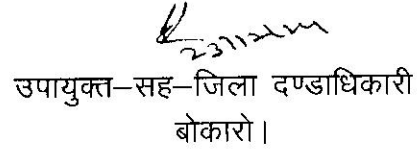 उपायुक्त–सह–जिला दण्डाधिकारी
बोकारो।